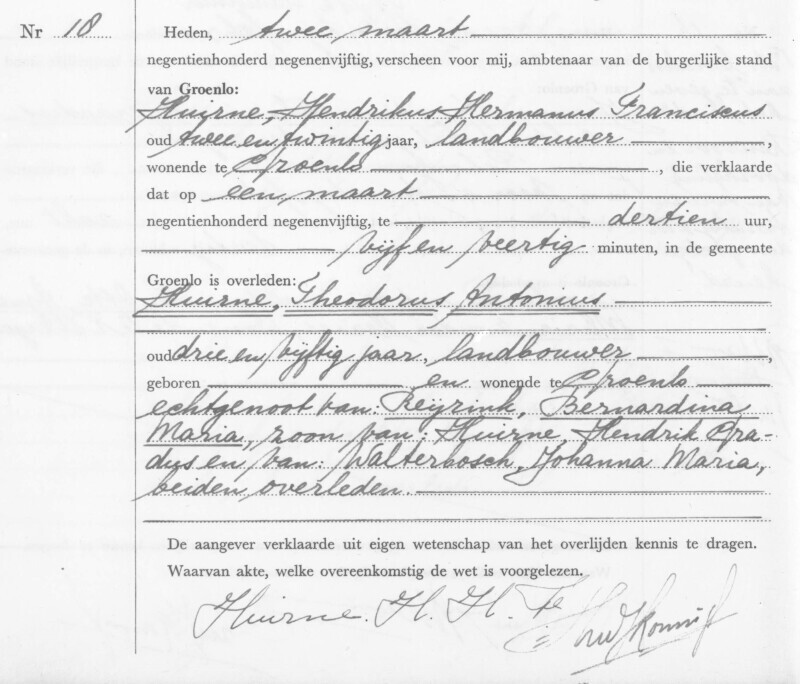 Nr 18 Heden, twee maart
negentienhonderd negenenvijftig, verscheen voor mij, ambtenaar van de burgerlijke stand
van Groenlo:
Huirne, Hendrikus Hermanus Franciscus
oud twee en twintig jaar, landbouwer,
wonende te Groenlo, die verklaarde
dat op een maart
negentienhonderd negenenvijftig, te dertien uur,
vijf en veertig minuten, in de gemeente
Groenlo is overleden:
Huirne, Theodorus Antonius
oud drie en vijftig jaar, landbouwer
geboren en wonende te Groenlo
echtgenoot van: Reijrink, Bernardina
Maria, zoon van: Huirne, Hendrik Gra-
dus en van: Walterbosch, Johanna Maria,
beiden overleden.
De aangever verklaarde uit eigen wetenschap van het overlijden kennis te dragen.
Waarvan akte, welke overeenkomstig de wet is voorgelezen.
Huirne. H. H. F.